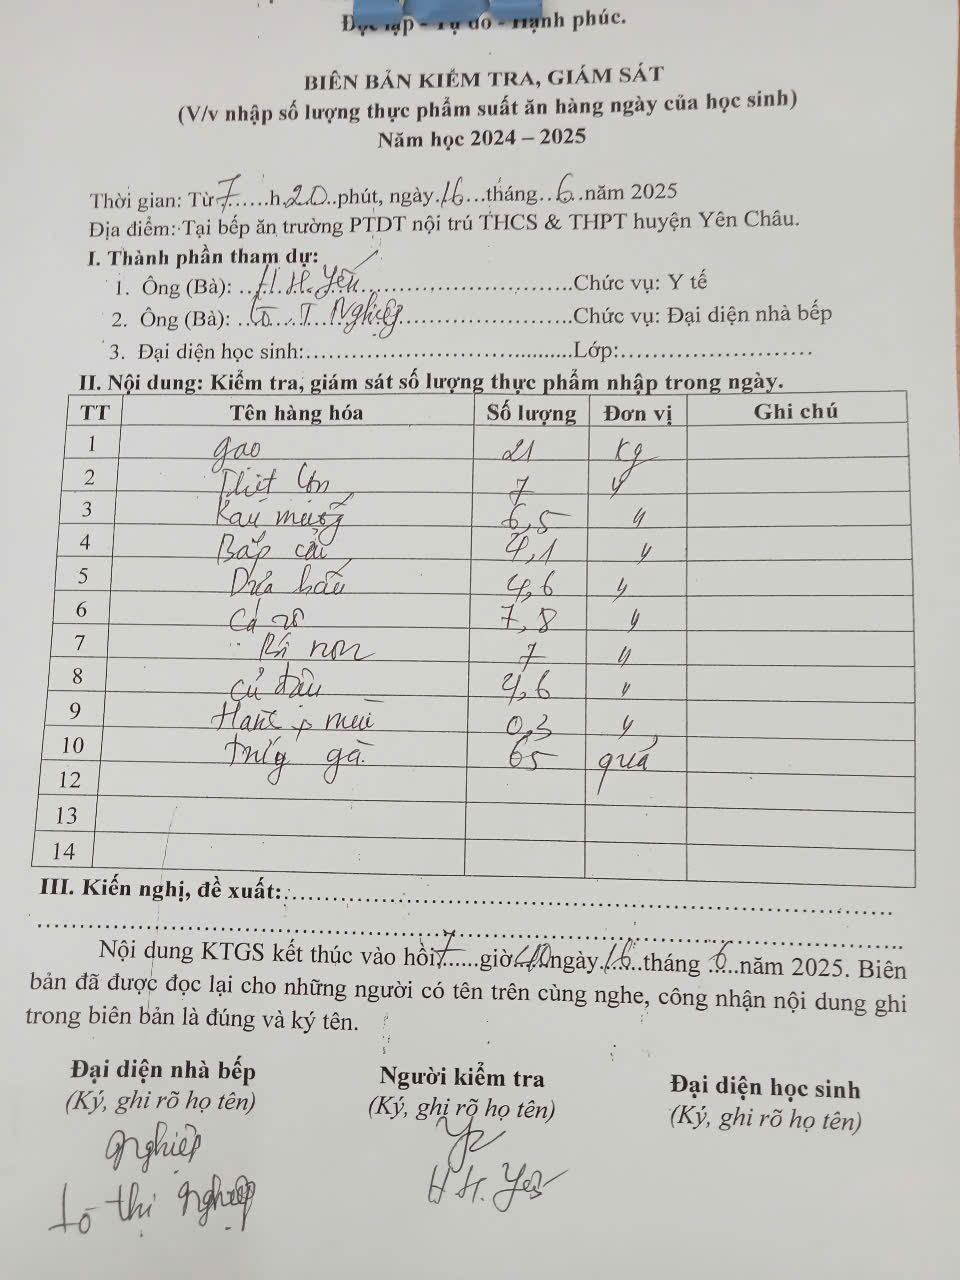 Độc lập - Tự do - Hạnh phúc.
BIÊN BẢN KIỂM TRA, GIÁM SÁT
(V/v nhập số lượng thực phẩm suất ăn hàng ngày của học sinh)
Năm học 2024 – 2025
Thời gian: Từ 7......h.20..phút, ngày.16...tháng..6..năm 2025
Địa điểm: Tại bếp ăn trường PTDT nội trú THCS & THPT huyện Yên Châu.
I. Thành phần tham dự:
1. Ông (Bà): ..H.H.Yến..............................Chức vụ: Y tế
2. Ông (Bà): ..Lò.T.Nghiệp..............................Chức vụ: Đại diện nhà bếp
3. Đại diện học sinh:........................................Lớp:............................
II. Nội dung: Kiểm tra, giám sát số lượng thực phẩm nhập trong ngày.
TT Tên hàng hóa Số lượng Đơn vị Ghi chú
1 gạo 21 kg
2 Thịt lợn 7 "
3 Rau muống 6,5 "
4 Bắp cải 4,1 "
5 Dưa hấu 4,6 "
6 Cá rô 7,8 "
7 non 7 "
8 củ đậu 4,6 "
9 Hành 0,3 "
10 trứng gà 65 quả
12
13
14
III. Kiến nghị, đề xuất:......................................................................
Nội dung KTGS kết thúc vào hồi 7......giờ 40 ngày..16..tháng .6...năm 2025. Biên
bản đã được đọc lại cho những người có tên trên cùng nghe, công nhận nội dung ghi
trong biên bản là đúng và ký tên.
Đại diện nhà bếp Người kiểm tra Đại diện học sinh
(Ký, ghi rõ họ tên) (Ký, ghi rõ họ tên) (Ký, ghi rõ họ tên)
Nghiệp
Lò thị Nghiệp H H. Yến